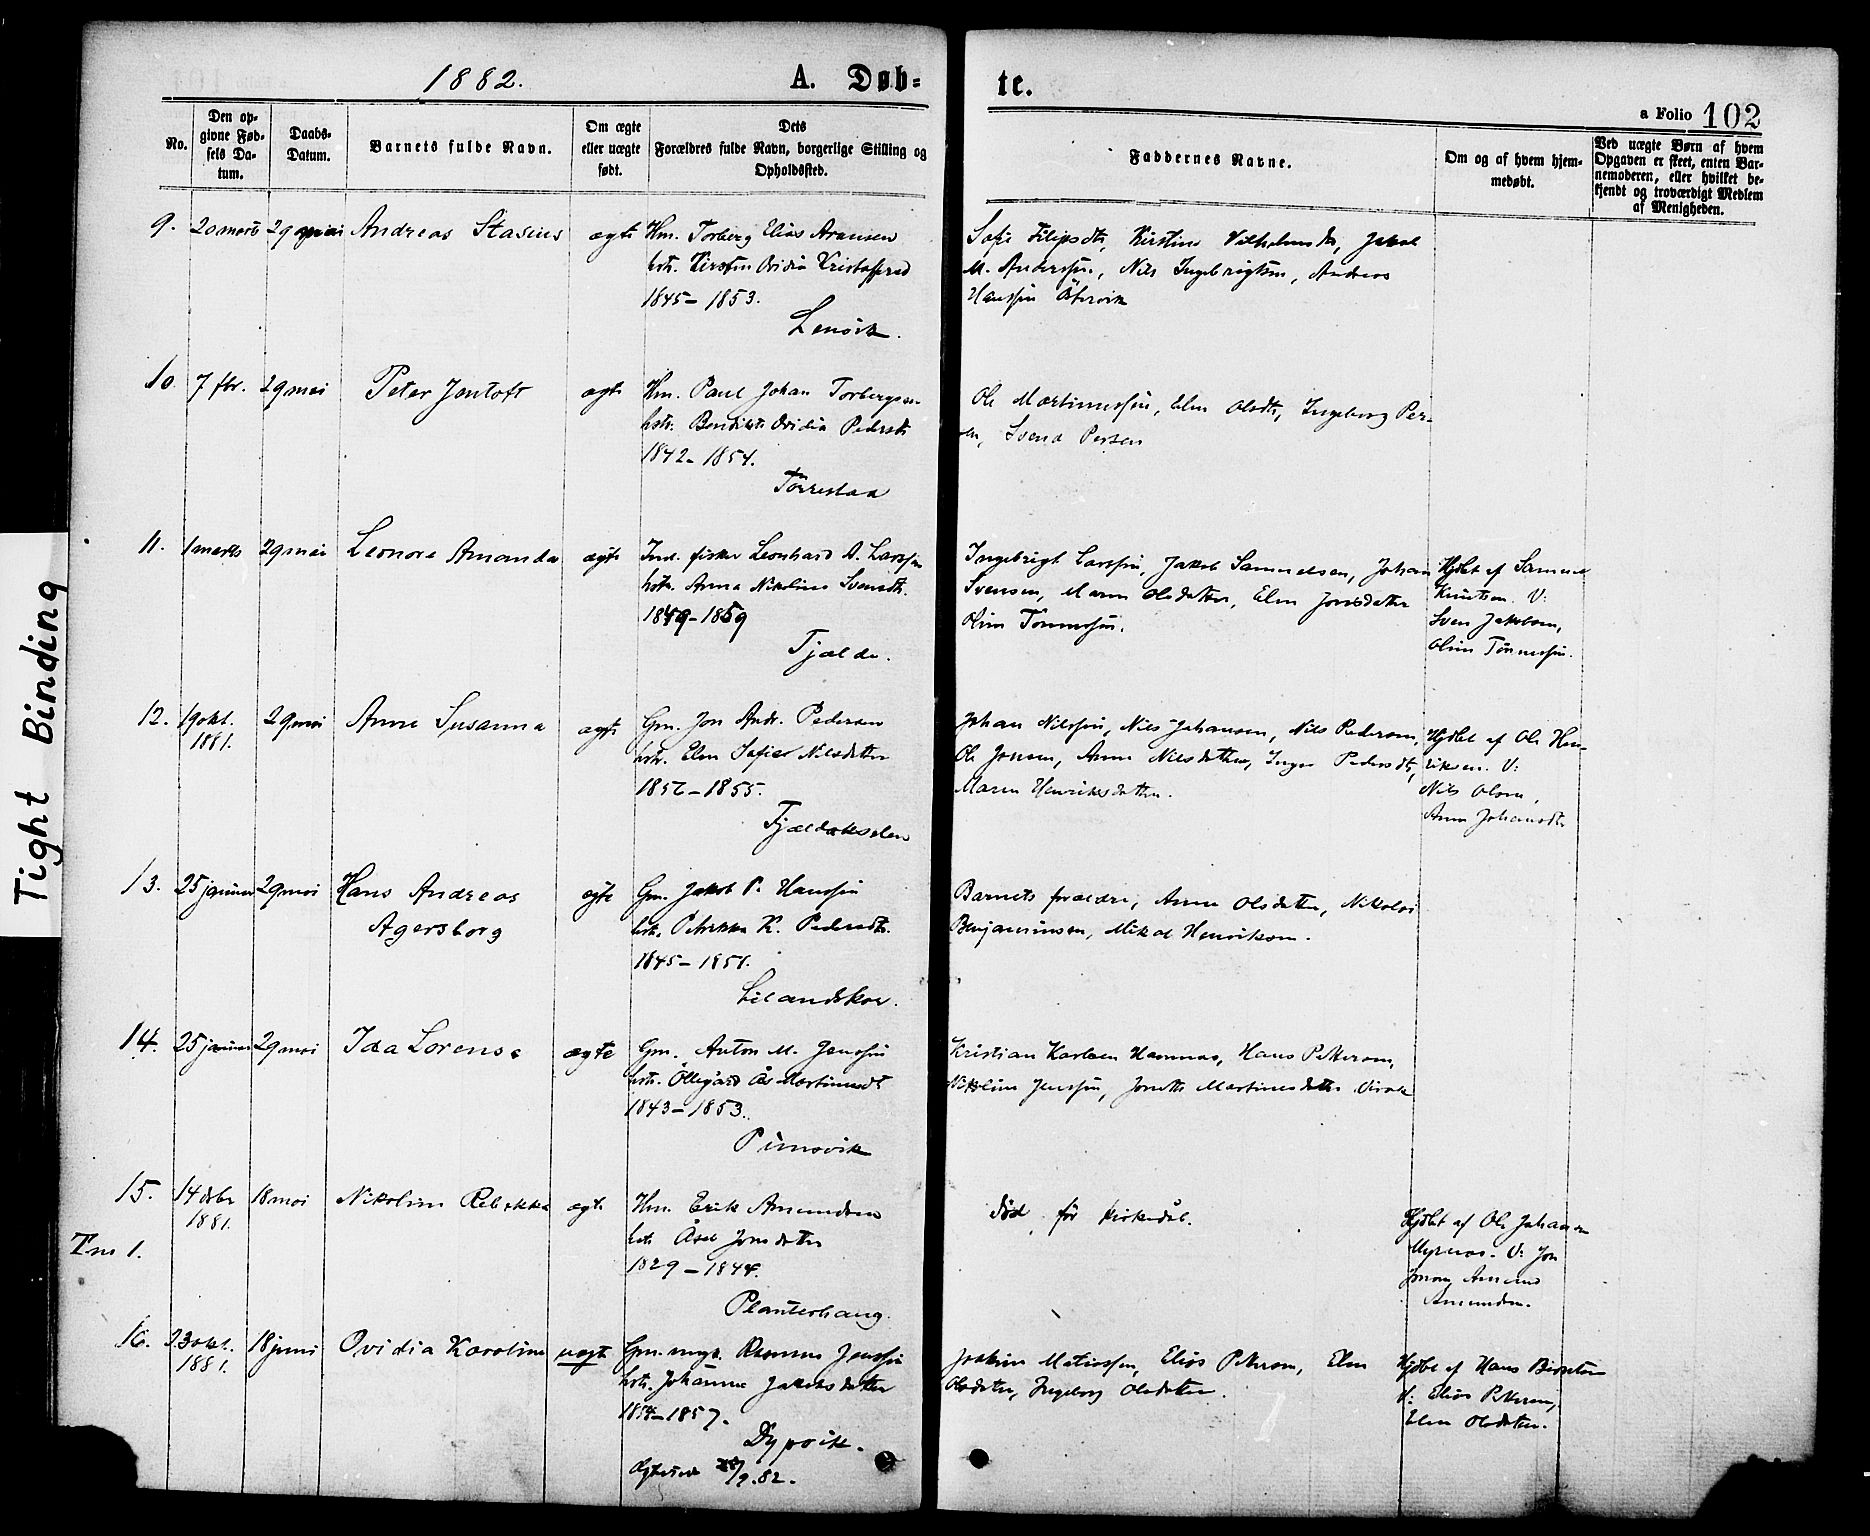 Tight Binding
1882. A. Døb-
te.
a Folio 102
No.
Den op-
givne Fød-
sels Da-
tum.
Daabs-
Datum.
Barnets fulde Navn.
Om ægte
eller uægte
født.
Dets
Forældres fulde Navn, borgerlige Stilling og
Opholdssted.
Faddernes Navne.
Om og af hvem hjem-
medøbt.
Ved uægte Børn af hvem
Opgaven er skeet, enten Bar-
nemoderen, eller hvilket be-
kjendt og troværdigt Medlem
af Menigheden.
9. 20 marts 29 mai Andreas Stasius ægte Hm. Torberg Elias Aronsen
hstr. Kirsten Ovidia
1845 - 1853.
Lenvik.
Sofie Filipsdtr, Kirstine Vilhelmsdtr, Jakob
M. Anderssøn, Nils Ingebrigtsen, Andreas
Hanssøn
10. 7 fbr. 29 mai Peter Jentoft ægte Hm. Paul Johan Torbergsen
hstr. Bendikte Ovidia Pedersdtr
1842 - 1854.
Tørrestad
Ole Martinussøn, Elen Olsdtr, Ingeborg Per-
sen, Svend Persen
11. 1 marts 29 mai Leonore Amanda ægte Ind. fisker Leonhard A. Larssøn
hstr. Anna Nikoline Svensdtr.
1849 - 1859
Fjælde.
Ingebrigt Larssøn, Jakob Samuelsen, Johan
Svensen, Maren Olsdatter, Elen Jonsdatter
Oline Tønnessøn.
Hjdbt af Samuel
Knutsen. V:
Sven Jakobsen,
Oline Tønnessøn.
12. 19 okt. 29 mai Anne Susanna ægte Gm. Jon Andr. Pedersen
1881.
hstr. Elen Sofie Nilsdatter
1856 - 1855.
Fjældakselen
Johan Nilssøn, Nils Johansen, Nils Pedersen,
Ole Jonsen, Anne Nilsdatter, Inger Pedersdtr,
Maren Henriksdatter.
Hjdbt af Ole Hen-
riksen. V:
Nils Olsen,
Anne Johansdtr
13. 25 januar 29 mai Hans Andreas ægte Gm. Jakob P. Hanssøn
Agersborg
hstr. Petrikke K. Pedersdtr.
1845 - 1851.
Lilandskar.
Barnets forældre, Anne Olsdatter, Nikolai
Benjaminsen, Mikal Henriksen.
14. 25 januar 29 mai Ida Lorense ægte Gm. Anton M. Jenssøn
hstr. Ollegård Ås Martinusdtr
1843 - 1853.
Finsvik
Kristian Karlsen Hamnas, Hans Pettersen,
Nikoline Jenssøn, Jonette Martinusdatter
15. 14 dsbr 18 mai Nikoline Rebekka ægte Hm. Erik Amundsen
1881.
hstr. Åsel Jonsdatter
1829 - 1844.
Planterhaug.
Død før kirkedåb.
Hjdbt af Ole Johansen
V: Jon
Jonsen, Amund
Amundsen.
Tm 1.
16. 23 okt. 18 juni Ovidia Karoline uægte Gm. ungk. Rasmus Jenssøn
1881.
hstr. Johanne Jakobsdatter
1854 - 1857.
Dypvik.
Ægteviede 28/9.82.
Joakim Matiassen, Elias Pettersen, Elen
Olsdatter, Ingeborg Olsdatter.
Hjdbt af Hans
V: Elias Pettersen,
Elen Olsdatter.